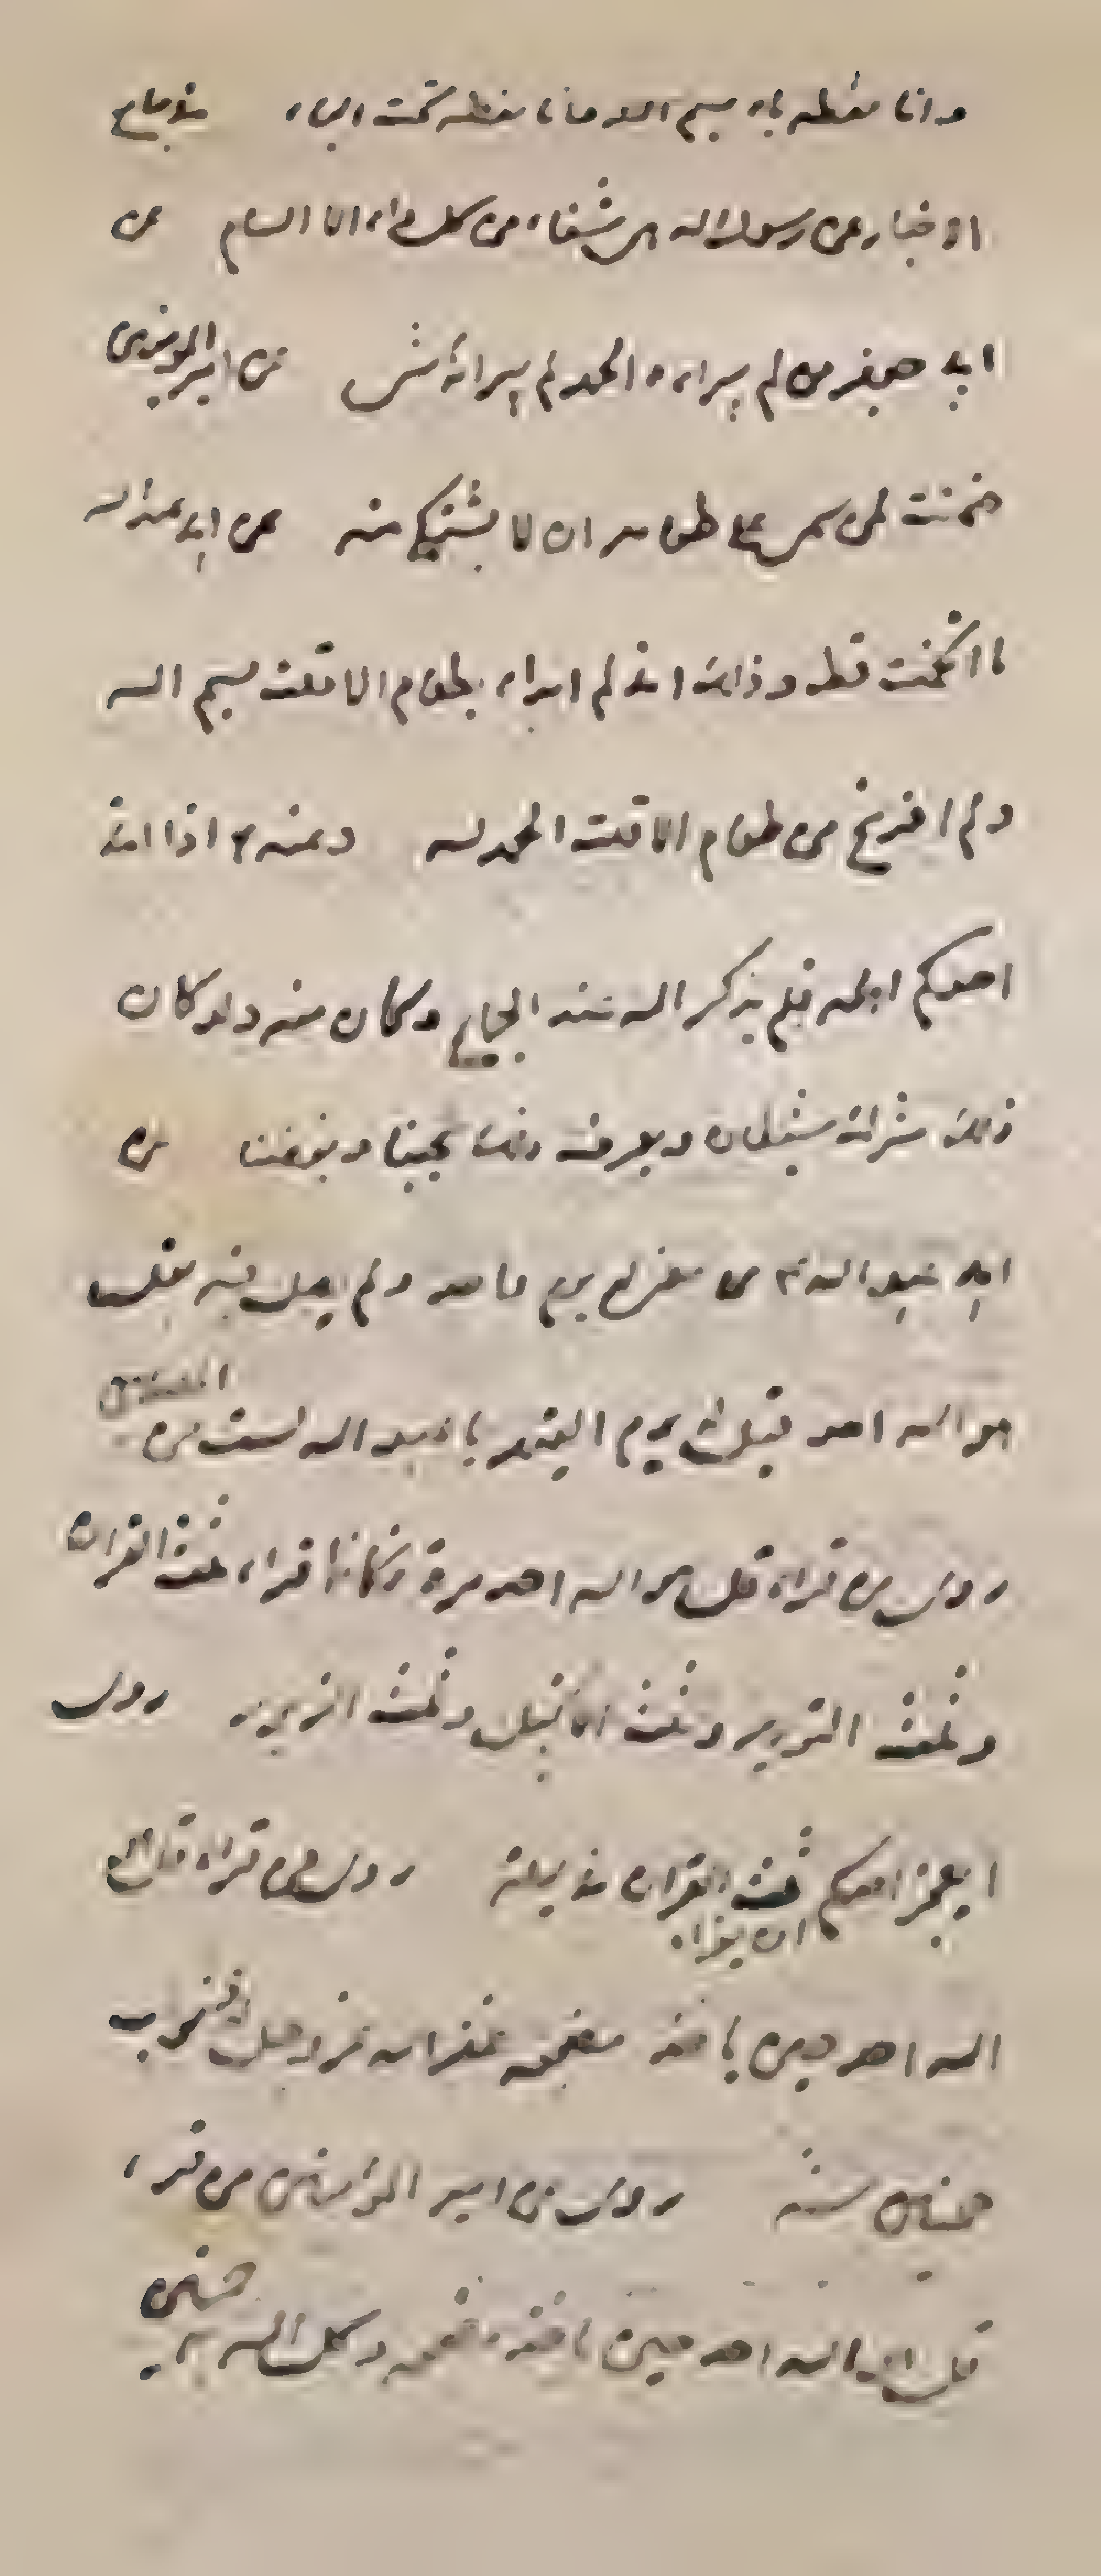 وانا نقطه باء بسم الله وانا نقطه تحت الباء في جامع
الاخبار عن رسول الله هي شفاء من كل داء الا السام عن
ابي جعفر من لم يبراءه الحمد لم يبرائه شي عن امير المومنين
ضمنت لمن سمى على طعامه ان لا يشتكي منه عن ابي عبدالله
ما اتخمت قط وذلك اني لم ابداء بطعام الا قلت بسم الله
ولم افرغ من طعام الا قلت الحمد لله وعنه اذا اتى
احدكم اهله فلم يذكر الله عند الجماع وكان منه ولد كان
ذلك شرك شيطان ويعرف ذلك بحبنا وبغضنا عن
ابي عبد الله من مضى له يوم واحد ولم يصل فيه بقل
هو الله احد قيل له يوم القيمه يا عبد الله لست من المصلين
روى من قراء قل هو الله احد مرة فكانما قراء ثلث القران
وثلث التورية وثلث الانجيل وثلث الزبور روى
ايعجز احدكم ان يقراء ثلث القران في ليلة روى من قراء قل هو
الله احد حين ياخذ مضجعه غفر الله عز وجل له ذنوب
خمسين سنه روى عن امير المؤمنين من قراء
قل هو الله احد حين ياخذ مضجعه وكل الله به خمسين